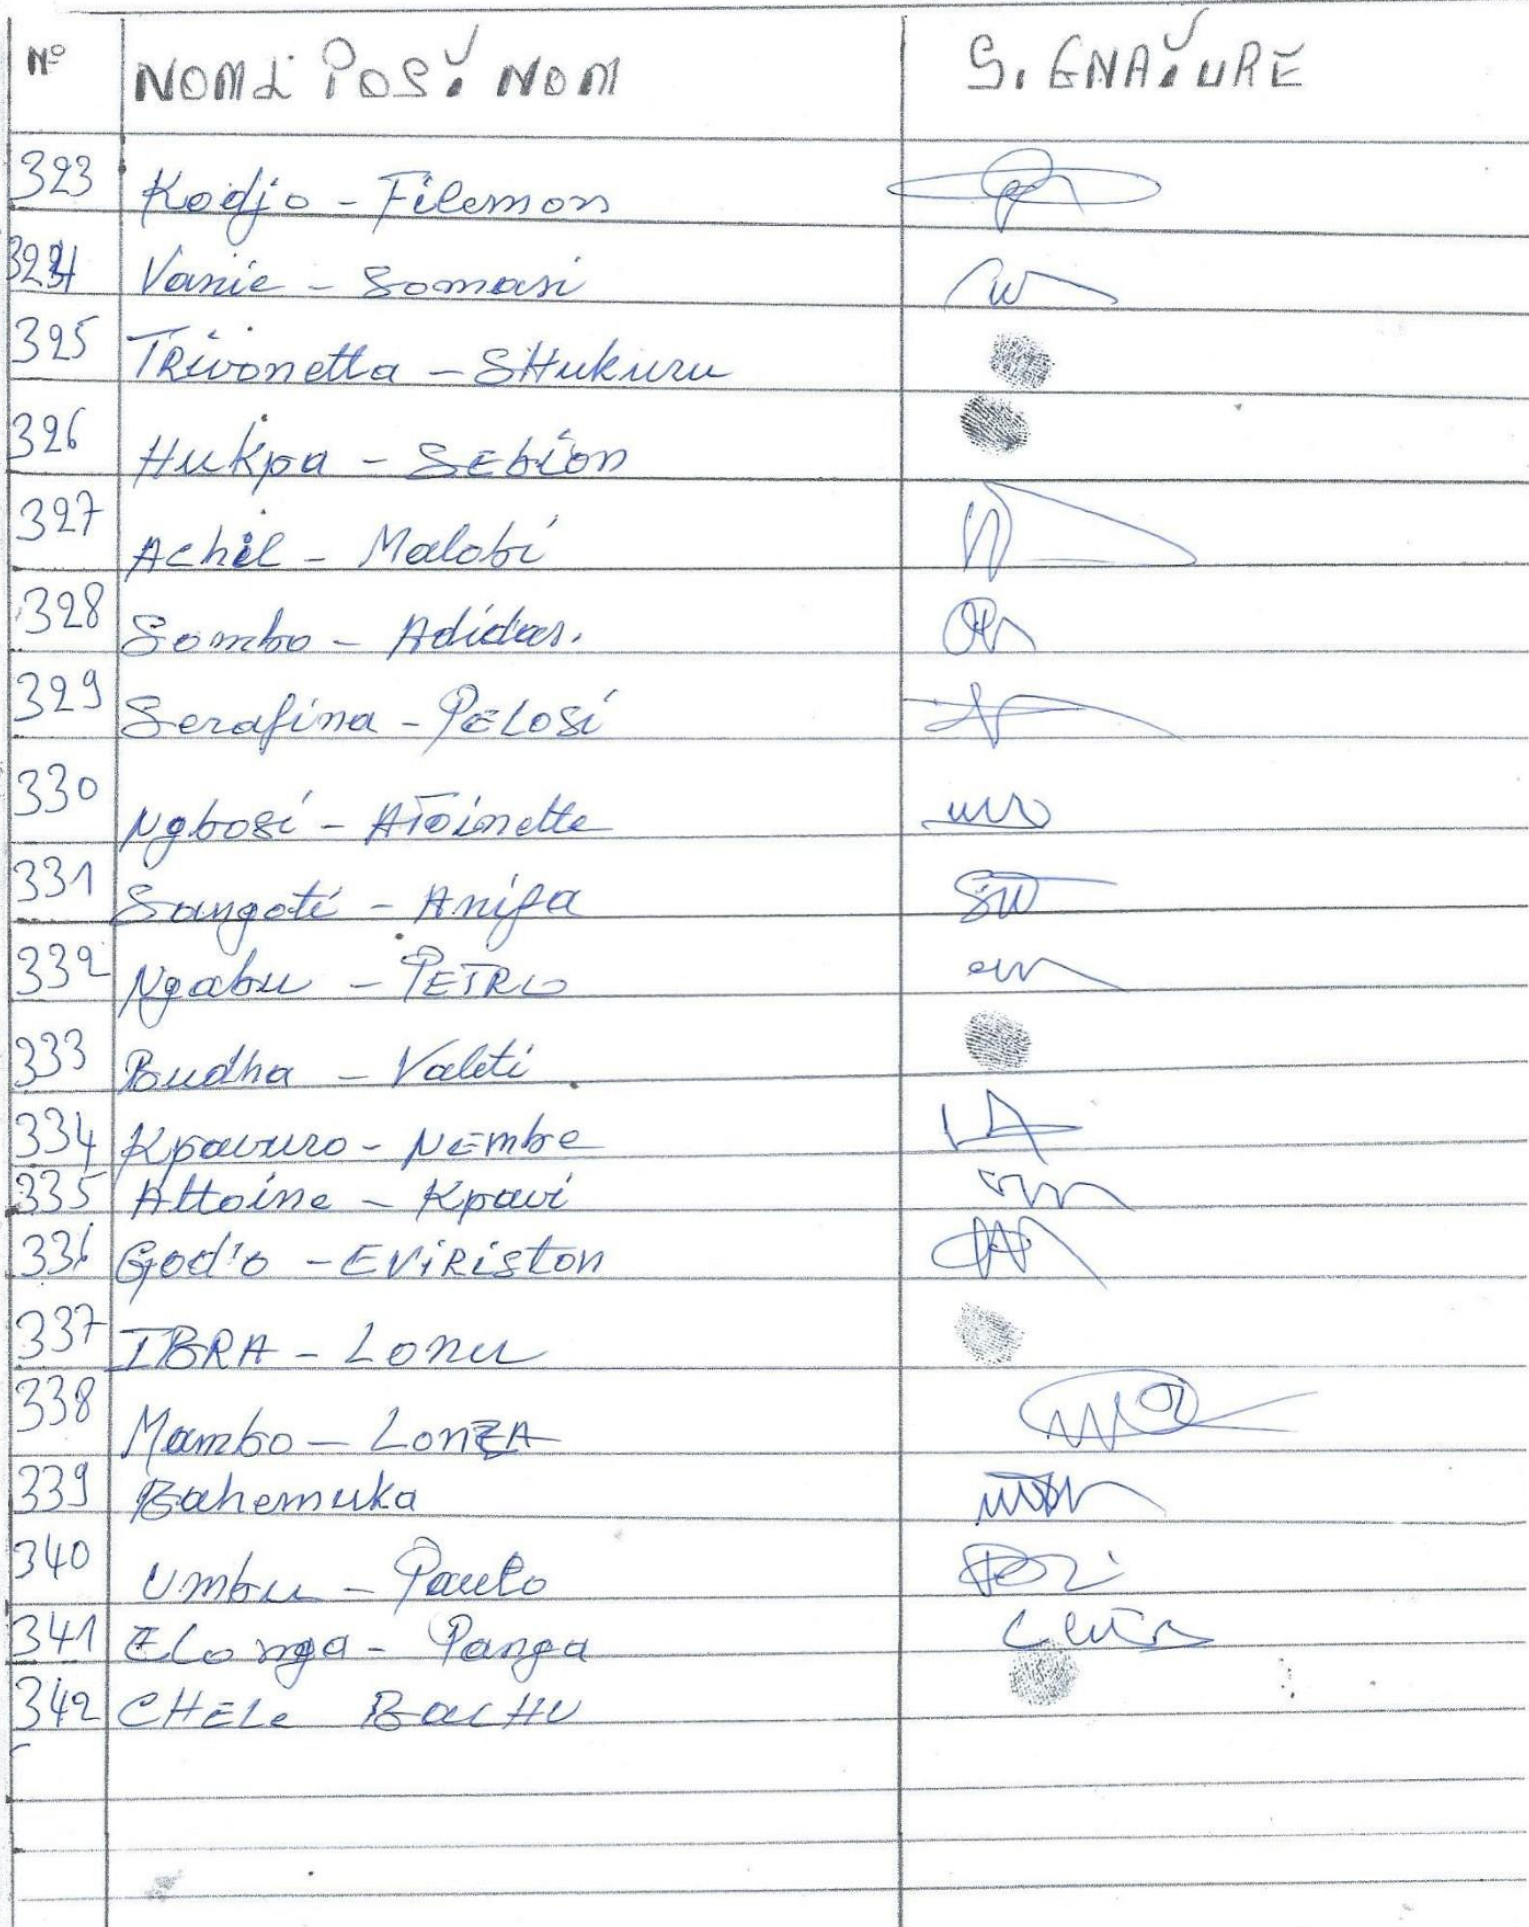 N° NOM & POST NOM SIGNATURE
323 Kodjo - Filemon
324 Vanie - Somasi
325 TRivonetta - SHukuru
326 Hukpa - SEbion
327 Achil - Malobi
328 Sombo - Adidas.
329 Serafina - PELOSi
330 Ngbosi - ATOinette
331 Sangoti - Anifa
332 Ngabu - PETRO
333 Budha - Valeti
334 Kpavuro - NEmbe
335 Attoine - Kpavi
336 God'o - EViRiston
337 IBRA - Lonu
338 Mambo - LonZA
339 Bahemuka
340 Umbu - Paulo
341 Elonga - Panga
342 CHELe BacHU